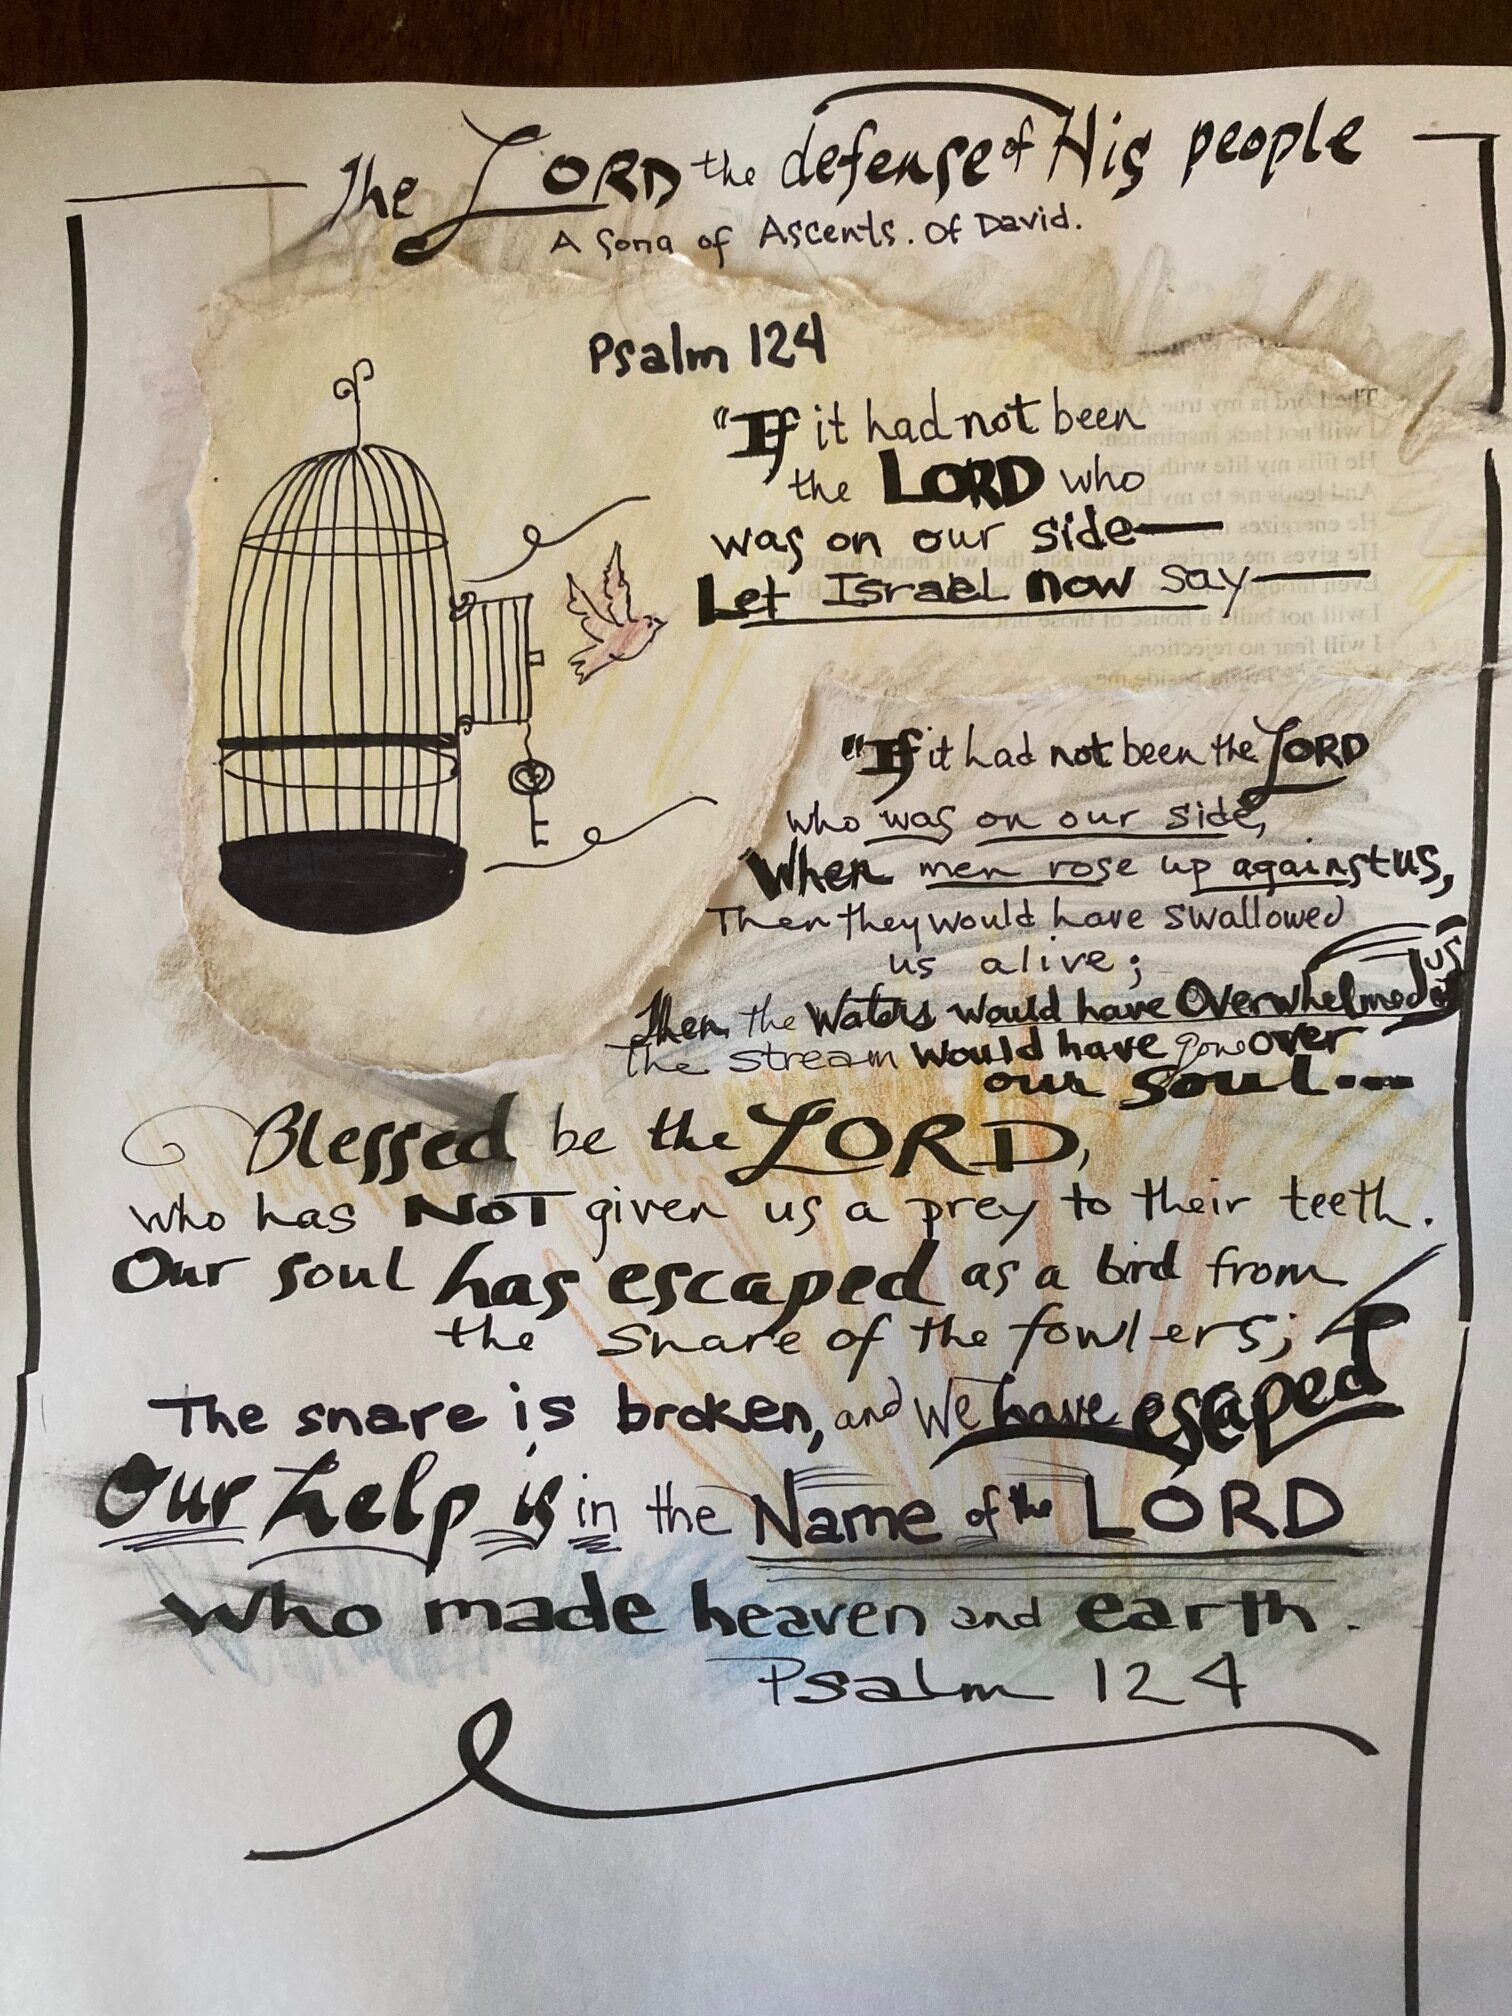 The LORD the defense of His people
A Song of Ascents. Of David.
Psalm 124
"If it had not been
the LORD who
was on our side—
Let Israel now say—
"If it had not been the LORD
who was on our side,
When men rose up against us,
Then they would have swallowed
us alive;
Then the Waters would have Overwhelmed us
The stream would have gone over
our soul...
Blessed be the LORD,
who has NOT given us a prey to their teeth.
Our soul has escaped as a bird from
the snare of the fowlers;
The snare is broken, and we have escaped
Our help is in the Name of the LORD
who made heaven and earth.
Psalm 124
The Lord is my true
I will not lack inspiration.
He fills my life with
And leads me to my
He energizes
He gives me stories and insights that will honor his name.
Even
I will not build a house of those
I will fear no rejection.
beside me